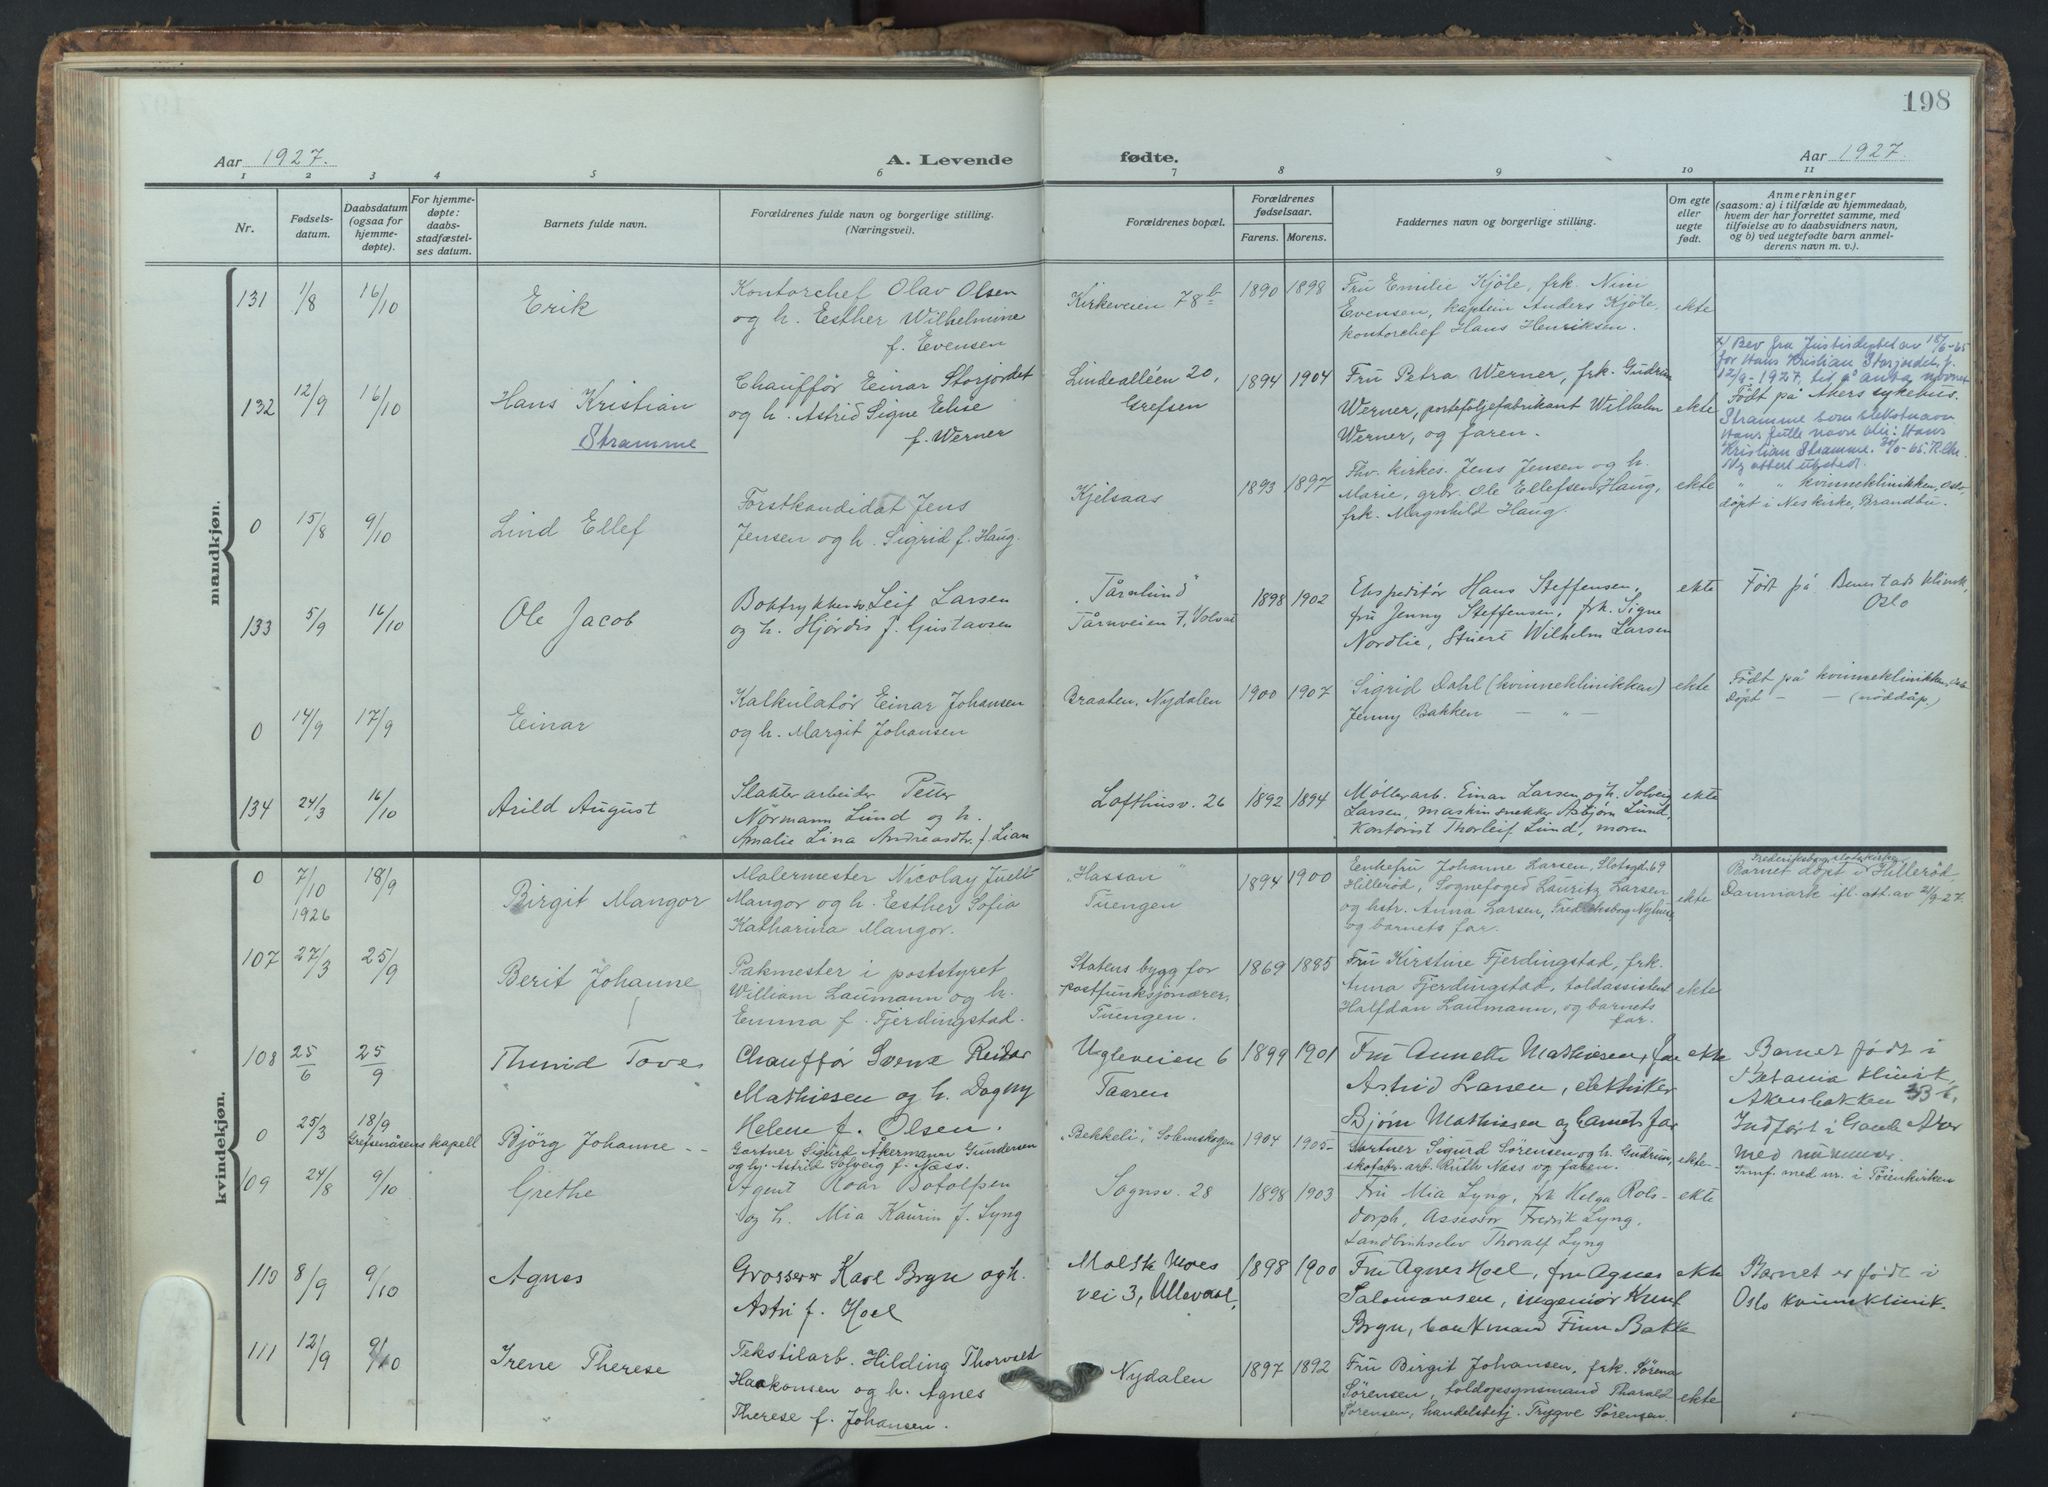 198
Aar 1927.
A. Levende fødte.
Aar 1927.
1 2 3 4 5 6 7 8 9 10 11
Nr.
Fødsels-
datum.
Daabsdatum
(ogsaa for
hjemme-
døpte).
For hjemme-
døpte:
daabs-
stadfæstel-
ses datum.
Barnets fulde navn.
Forældrenes fulde navn og borgerlige stilling.
(Næringsvei).
Forældrenes bopæl.
Forældrenes
fødselsaar.
Farens. Morens.
Faddernes navn og borgerlige stilling.
Om egte
eller
uegte
født.
Anmerkninger
(saasom: a) i tilfælde av hjemmedaab,
hvem der har forrettet samme, med
tilføielse av to daabsvidners navn,
og b) ved uegtefødte barn anmel-
derens navn m. v.).
mandkjøn.
131 1/8 16/10 Erik
Kontorchef Olav Olsen
og h. Esther Wilhelmine
f. Evensen
Kirkeveien 78b 1890 1898
Fru Emilie Kjøle, frk. Nini
Evensen, kaptein Anders Kjøle,
kontorchef Hans Henriksen.
ekte
132 12/9 16/10 Hans Kristian
Stramme
Chauffør Einar Storjordet
og h. Astrid Signe Elise
f. Werner
Lindealléen 20,
Grefsen
1894 1904
Fru Petra Werner, frk. Gudrun
Werner, portefoljefabrikant Wilhelm
Werner, og faren.
ekte
x/ Bev fra Justisdeptet av 18/6-65
for Hans Kristian Storjordet, f.
12/9-1927, til å anta navnet
Født på Akers sykehus.
Stramme som slektsnavn
Hans fulle navn blir: Hans
Kristian Stramme.
Ny attest utstedt.
0 15/8 9/10 Lind Ellef
Forstkandidat Jens
Jensen og h. Sigrid f. Haug.
Kjelsaas 1893 1897
Fhv. kirkes. Jens Jensen og h.
Marie, grbr. Ole Ellefsen Haug,
frk. Magnhild Haug.
ekte
" " kvinneklinikken, Oslo,
døpt i Nes kirke, Brandbu.
133 5/9 16/10 Ole Jacob
Boktrykkersv. Leif Larsen
og h. Hjørdis f. Gustavsen
"Tårnlund"
Tårnveien 7, Volvat
1898 1902
Ekspeditør Hans Steffensen,
fru Jenny Steffensen, frk. Signe
Nordlie, Stuert Wilhelm Larsen
ekte
Født på klinik,
Oslo
0 14/9 17/9 Einar
Kalkulatør Einar Johansen
og h. Margit Johansen
Braaten, Nydalen 1900 1907
Sigrid Dahl (kvinneklinikken)
Jenny Bakken — " —
ekte
Født på kvinneklinikken, Oslo
Døpt — — (nøddåp.)
134 24/3 16/10 Arild August
Slakterarbeider Petter
Normann Lund og h.
Amalie Lina Andreasdtr. f. Lian
Lofthusv. 26 1892 1894
Møllerarb. Einar Larsen og h. Solveig
Larsen, maskinsnekker Asbjørn Lund,
Kontorist Thorleif Lund, moren
ekte
kvindekjøn.
0 7/10 1926 18/9 Birgit Mangor
Malermester Nicolay Juell
Mangor og h. Esther Sofia
Katharina Mangor.
"Hassan"
Tuengen
1894 1900
Enkefru Johanne Larsen, Slotsgd. 69
Hillerød, Sognefoged Lauritz Larsen
og hstr. Anna Larsen, Fredriksborg
og barnets far.
ekte
Frederiksborg slotskirke,
Barnet døpt i Hillerød,
Danmark ifl. att. av 21/9-27.
107 27/3 25/9 Berit Johanne
Pakmester i poststyret
William Laumann og h.
Emma f. Fjerdingstad.
Statens bygg for
postfunksjonærer,
Tuengen.
1869 1885
Fru Kirstine Fjerdingstad, frk.
Anna Fjerdingstad, toldassistent
Halfdan Laumann, og barnets
far.
ekte
108 25/6 25/9 Thurid Tove
Chauffør Svenn Reidar
Mathiesen og h. Dagny
Helene f. Olsen.
Ugleveien 6
Taaren
1899 1901
Fru Annette Mathiesen, fru
Astrid Larsen, elektriker
Bjørn Mathiesen og barnets far
ekte
Barnet født i
Betania klinik,
Akersbakken
Indført i Gamle Aker
med nummer.
0 25/3 18/9
Grefsenåsens kapell
Bjørg Johanne
Gartner Sigurd Åkermann Gundersen
og h. Astrid Solveig f. Næss.
"Bekkeli", Solemskogen 1904 1905
Gartner Sigurd Sørensen og h. Gudrun,
skofabr. arb. Ruth Næss og faren.
ekte
Innf. med nr. i
109 24/8 9/10 Grethe
Agent Roar Botolfsen
og h. Mia Kaurin f. Lyng
Sognsv. 28 1898 1903
Fru Mia Lyng, frk Helga Rols-
dorph, Assessor Fredrik Lyng,
Landbrukselev Thoralf Lyng
ekte
110 8/9 9/10 Agnes
Grosserer Karl Bryn og h.
Astri f. Hoel
Moltke Moes
vei 3, Ullevaal,
1898 1900
Fru Agnes Hoel, fru Agnes
Salomonsen, ingeniør Knut
Bryn, bankmand Finn Bakke
ekte
Barnet er født i
Oslo kvinneklinik.
111 12/9 9/10 Irene Therese
Tekstilarb. Hilding Thorvald
Haakonsen og h. Agnes
Therese f. Johansen.
Nydalen 1897 1892
Fru Birgit Johansen, frk. Sørena
Sørensen, toldopsynsmand Tharald
Sørensen, handelsbetj. Trygve Sørensen.
ekte